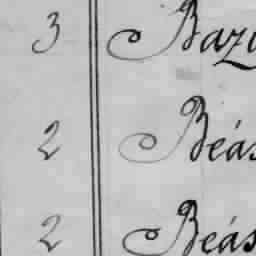 3 Bazi
2 Beás
2 Beás